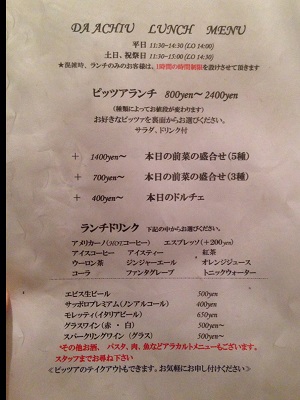 DA ACHIU LUNCH MENU
平日 11:30~14:30 (LO 14:00)
土日、祝祭日 11:30~15:00 (LO 14:30)
★混雑時、ランチのみのお客様は、1時間の時間制限を設けさせて頂きます
ピッツアランチ 800yen～2400yen
(種類によってお値段が変わります)
お好きなピッツァを裏面からお選びください。
サラダ、ドリンク付
+ 1400yen～ 本日の前菜の盛合せ(5種)
+ 700yen～ 本日の前菜の盛合せ(3種)
+ 400yen～ 本日のドルチェ
ランチドリンク 下記の中からお選びください。
アメリカーノ(HOTコーヒー) エスプレッソ(+200yen)
アイスコーヒー アイスティー 紅茶
ウーロン茶 ジンジャーエール オレンジジュース
コーラ ファンタグレープ トニックウォーター
エビス生ビール 500yen
サッポロプレミアム(ノンアルコール) 400yen
モレッティ(イタリアビール) 650yen
グラスワイン(赤・白) 500yen～
スパークリングワイン (グラス) 500yen～
*その他お酒、パスタ、肉、魚などアラカルトメニューもございます。
スタッフまでお尋ね下さい
≪ピッツアのテイクアウトもできます。お気軽にお申し付けください≫